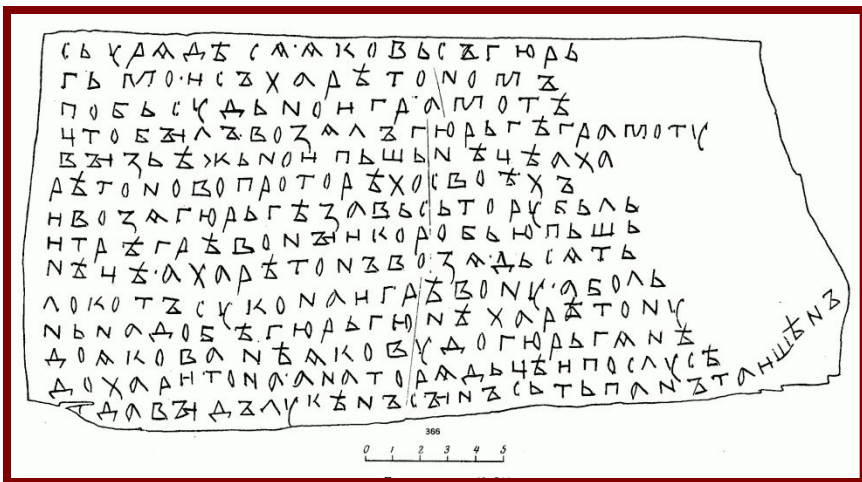 сь урѧдѣсѧ·ѧковьсъгюрь
гьмо·исъхарѣтономъ
побьсудьноигра·мотѣ
цтобылъ·возѧлъгюрьгѣграмоту
въызьѣжьноипьшьнѣцѣаха
рѣтоновопроторѣхосвоѣхъ
ивозѧгюрьгѣзавьсьторубьль
итрѣгрѣвоныикоробьюпьшь
нѣцѣ·ахарѣтонъвозѧ·дьсѧть
локотъсуконаигрѣвону·аболь
ньнадобѣгюрьгюнѣхарѣтону
доѧкованѣѧковудогюрьгѧнѣ
дохаритона·анаторѧдьцѣипослусѣ
давыдълукѣнъсынъсьтьпанътаишѣнъ
366
0 1 2 3 4 5